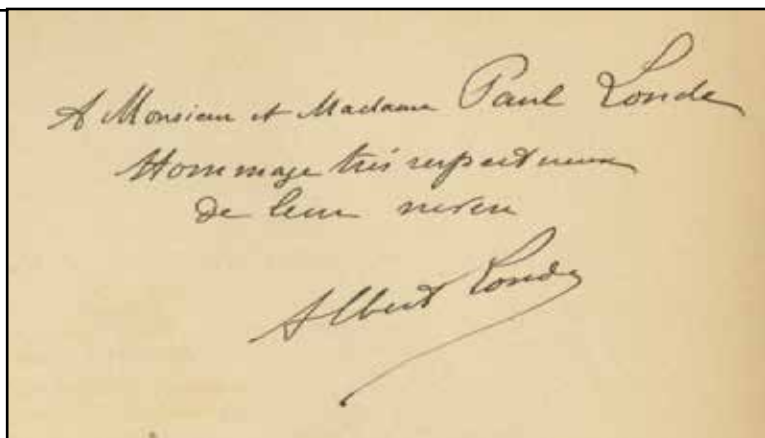 A Monsieur et Madame Paul Londe
Hommage très respectueux
de leur neveu
Albert Londe